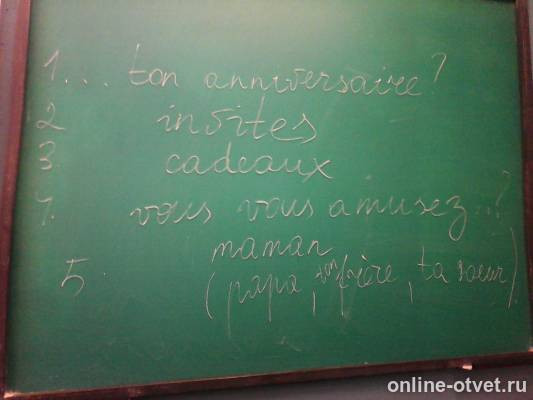 1... ton anniversaire?
2 invites
3. cadeaux
4. vous vous amusez..?
5. maman
(papa, ton frère, ta soeur).
online-otvet.ru